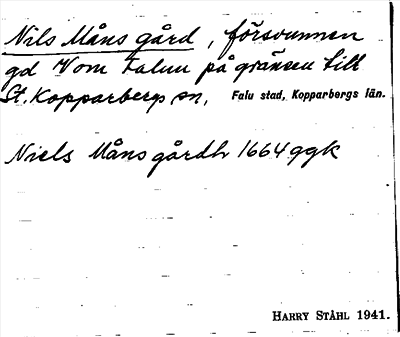 Nils Måns gård, försvunnen
gd V om Falun på gränsen till
St. Kopparbergs sn, Falu stad, Kopparbergs län.
Niels Måns gårdh 1664 ggk
HARRY STÅHL 1941.